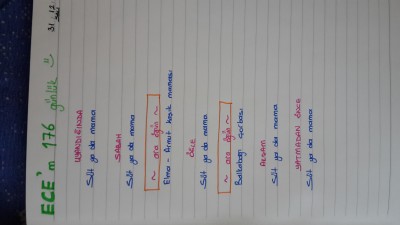 31.12
ECE'm 176 günlük
UYANDIĞINDA
Süt ya da mama
SABAH
Süt ya da mama
~ ara öğün ~
Elma - Armut kaşık maması
ÖĞLE
Süt ya da mama
~ ara öğün ~
Balkabağı çorbası
AKŞAM
Süt ya da mama
YATMADAN ÖNCE
Süt ya da mama